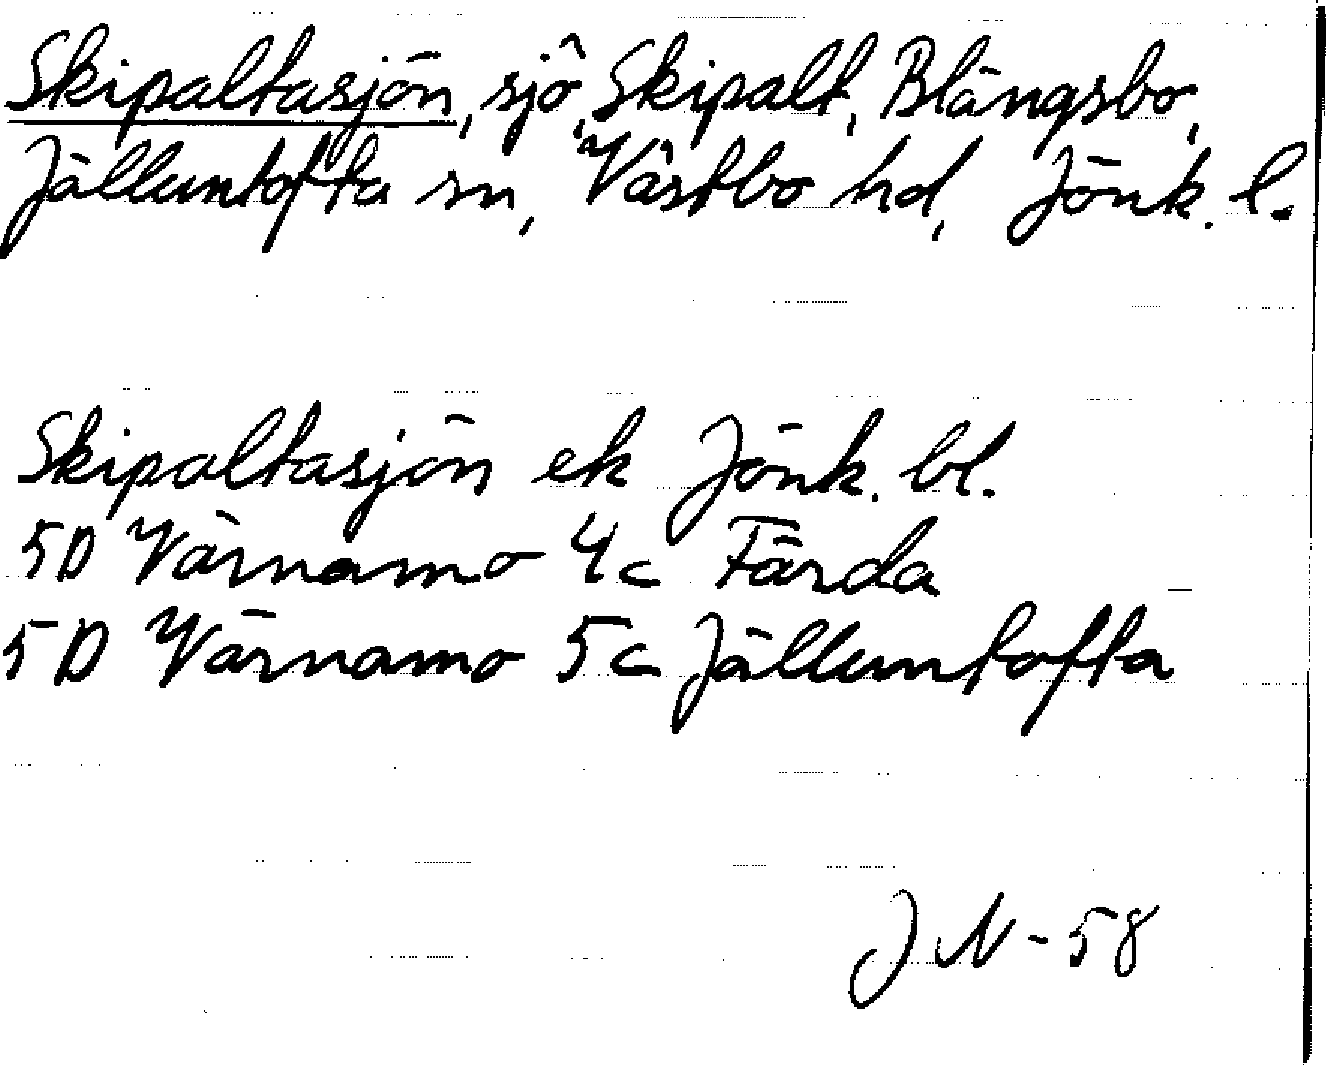 Skipaltasjön, sjö, Skipalt, Blängsbo,
Jälluntofta sn, Västbo hd, Jönk. l.
Skipaltasjön ek Jönk. bl.
5D Värnamo 4c Färda
5D Värnamo 5c Jälluntofta
JN-58